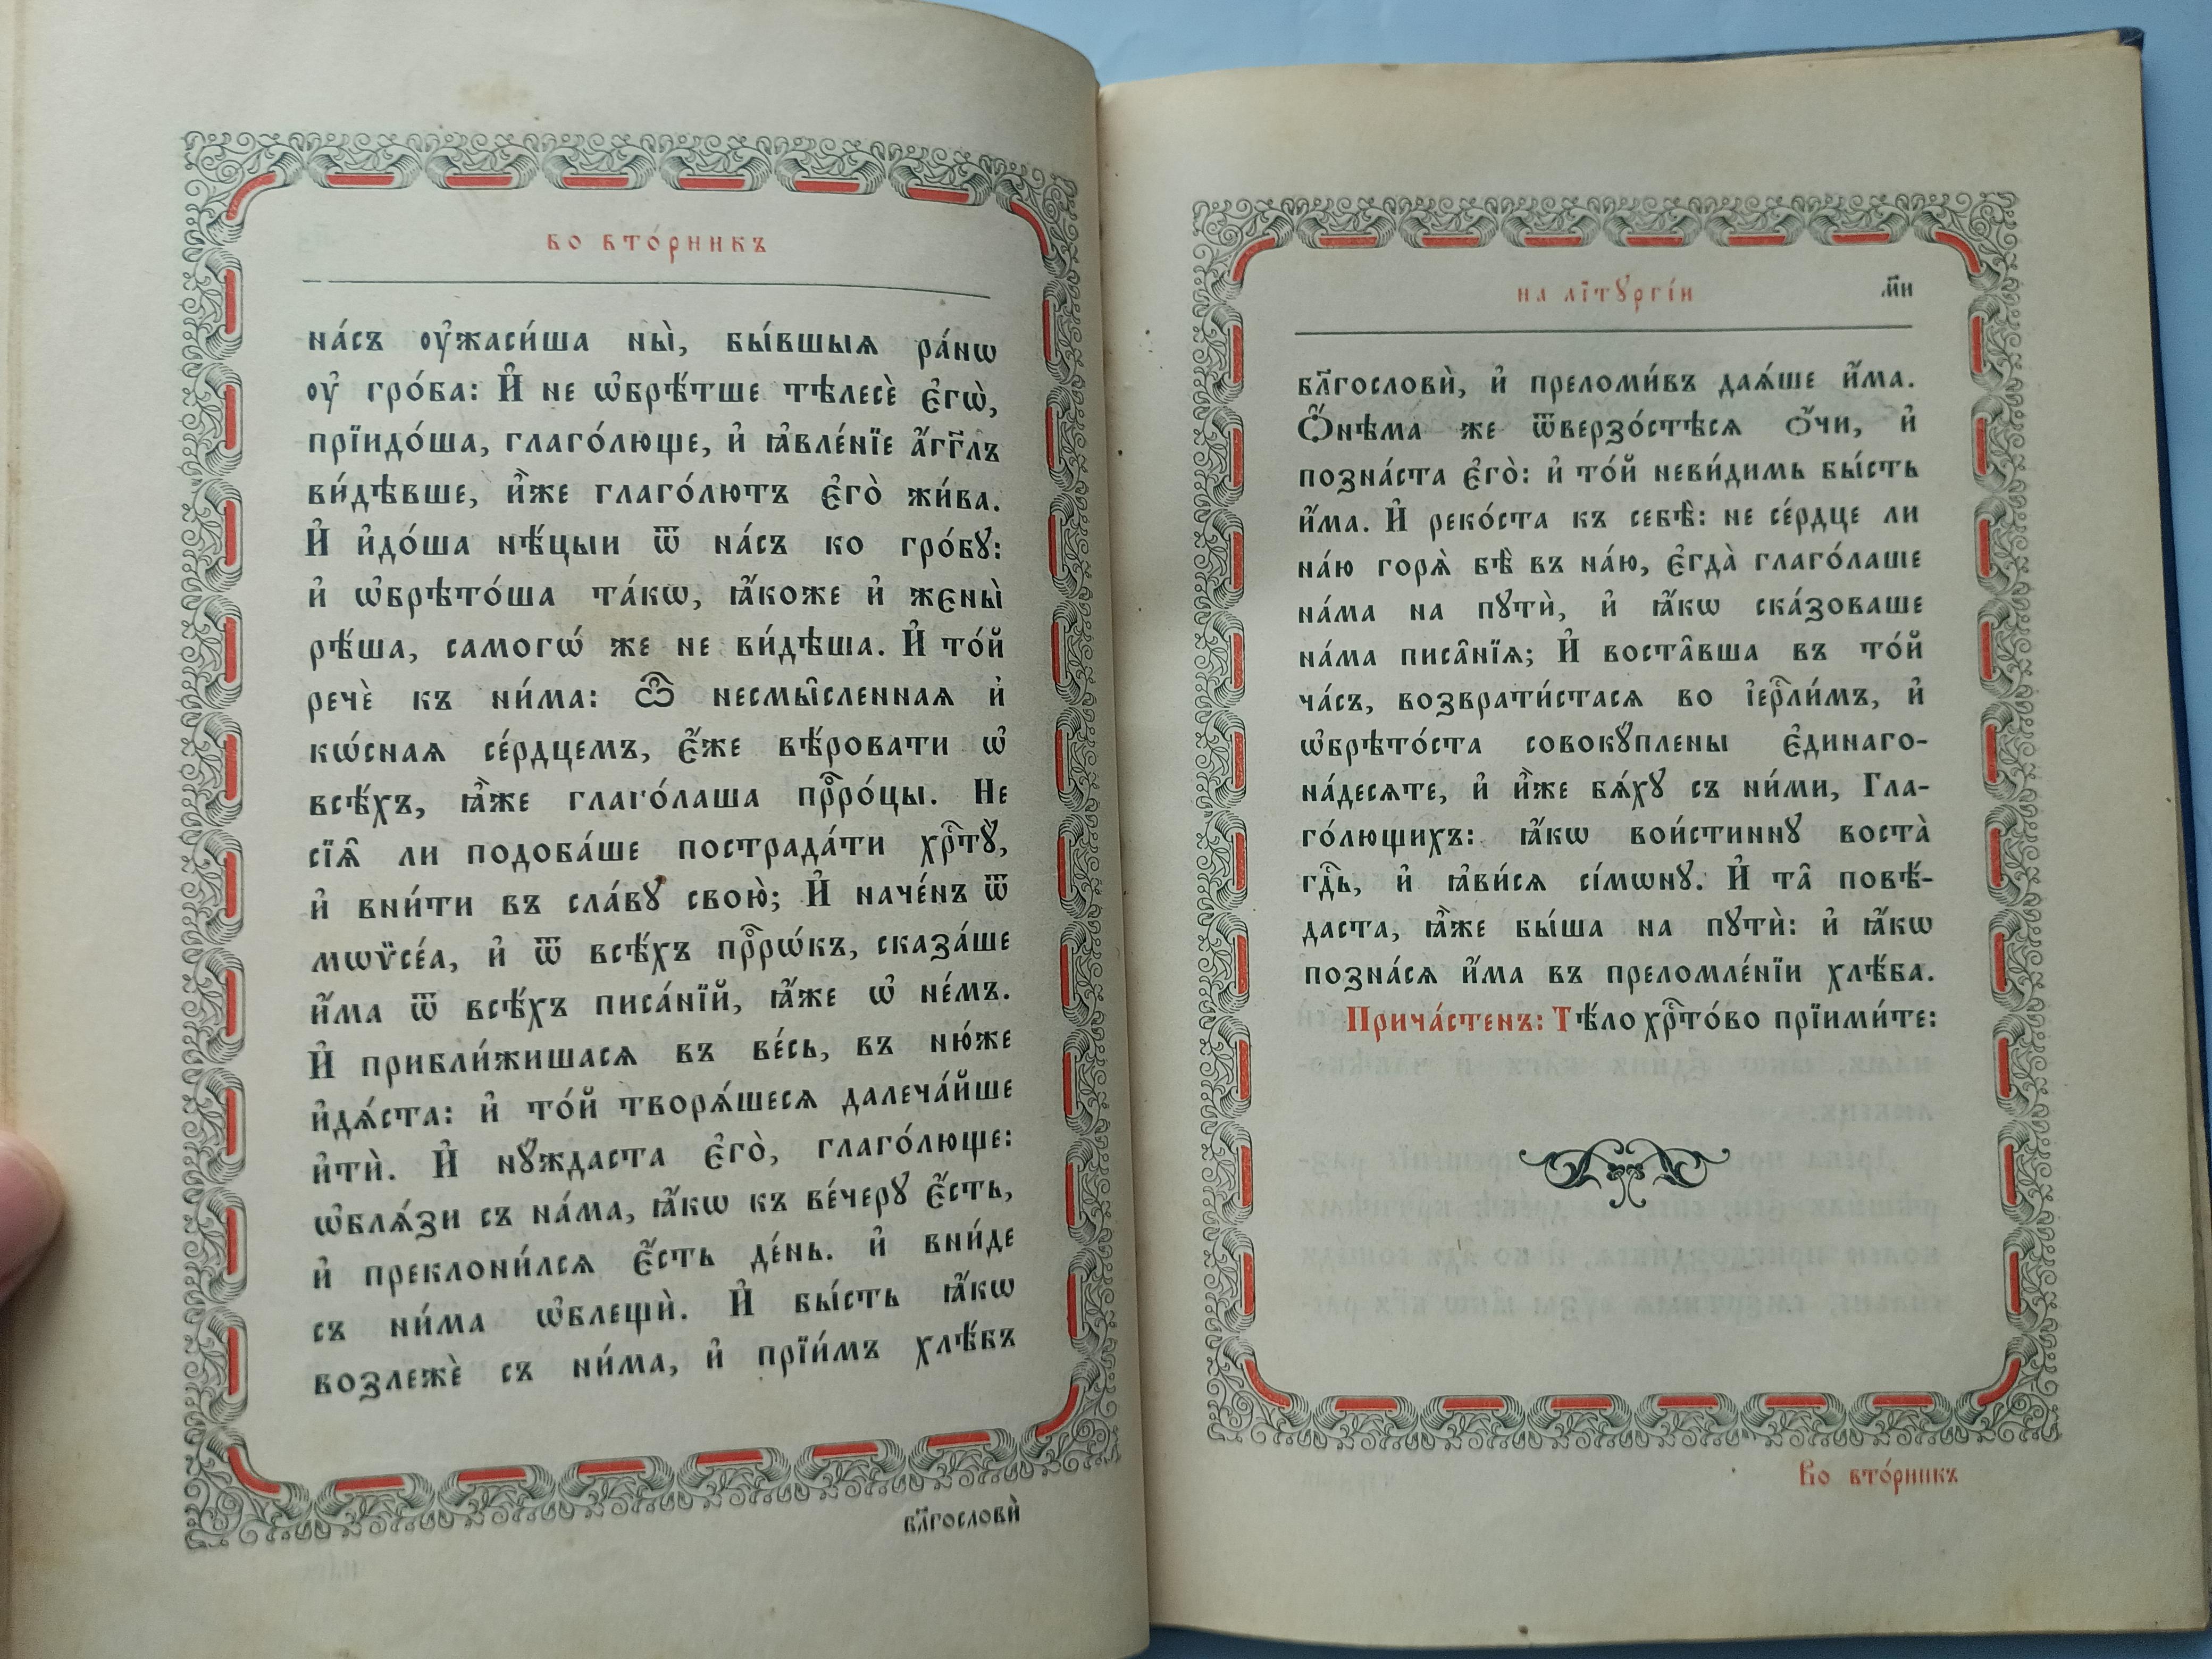 во вто́рникъ
на́съ ᲂу҆жаси́ша ны̀, бы́вшыѧ ра́нѡ
ᲂу҆ гро́ба: И҆ не ѡ҆брѣ́тше тѣлесѐ є҆гѡ̀,
прїидо́ша, глаго́люще, и҆ ꙗ҆вле́нїе а҆́гг҃лъ
ви́дѣвше, и҆̀же глаго́лютъ є҆го̀ жи́ва.
И҆ и҆до́ша нѣ́цыи ѿ на́съ ко гро́бꙋ:
и҆ ѡ҆брѣто́ша та́кѡ, ꙗ҆́коже и҆ жєны̀
рѣ́ша, самогѡ́ же не ви́дѣша. И҆ то́й
речѐ къ ни́ма: Ѽ несмы̑сленнаѧ и҆
кѡ́снаѧ се́рдцемъ, є҆́же вѣ́ровати ѡ҆
всѣ́хъ, ꙗ҆̀же глаго́лаша прⷪ҇ро́цы. Не
сїѧ̑ ли подоба́ше пострада́ти хрⷭ҇тꙋ̀,
и҆ вни́ти въ сла́вꙋ свою̀; И҆ наче́нъ ѿ
мѡѷсе́а, и҆ ѿ всѣ́хъ прⷪ҇рѡ́къ, сказа́ше
и҆́ма ѿ всѣ́хъ писа́нїй, ꙗ҆́же ѡ҆ не́мъ.
И҆ прибли́жишасѧ въ ве́сь, въ ню́же
и҆дѧ́ста: и҆ то́й творѧ́шесѧ далеча́йше
и҆тѝ. И҆ нꙋ́ждаста є҆го̀, глаго́люще:
ѡ҆блѧ́зи съ на́ма, ꙗ҆́кѡ къ ве́черꙋ є҆́сть,
и҆ преклони́лсѧ є҆́сть де́нь. и҆ вни́де
съ ни́ма ѡ҆блещѝ. И҆ бы́сть ꙗ҆́кѡ
возлежѐ съ ни́ма, и҆ прїи́мъ хлѣ́бъ
бл҃гословѝ
на лїтꙋргі́и
м҃и
бл҃гословѝ, и҆ преломи́въ даѧ́ше и҆́ма.
Ѻ҆́нѣма же ѿверзо́стѣсѧ ѻ҆́чи, и҆
позна́ста є҆го̀: и҆ то́й неви́димь бы́сть
и҆́ма. И҆ реко́ста къ себѣ̀: не се́рдце ли
на́ю горѧ̀ бѣ̀ въ на́ю, є҆гда̀ глаго́лаше
на́ма на пꙋтѝ, и҆ ꙗ҆́кѡ ска́зоваше
на́ма писа̑нїѧ; И҆ воста̑вша въ то́й
ча́съ, возврати́стасѧ во і҆ерⷭ҇ли́мъ, и҆
ѡ҆брѣто́ста совокꙋ́плены є҆динаго-
на́десѧте, и҆ и҆̀же бѧ́хꙋ съ ни́ми, Гла-
го́лющихъ: ꙗ҆́кѡ вои́стиннꙋ воста̀
гдⷭ҇ь, и҆ ꙗ҆ви́сѧ сі́мѡнꙋ. И҆ та̑ повѣ́-
даста, ꙗ҆̀же бы́ша на пꙋтѝ: и҆ ꙗ҆́кѡ
позна́сѧ и҆́ма въ преломле́нїи хлѣ́ба.
Прича́стенъ: Тѣ́ло хрⷭ҇то́во прїими́те:
Во вто́рникъ